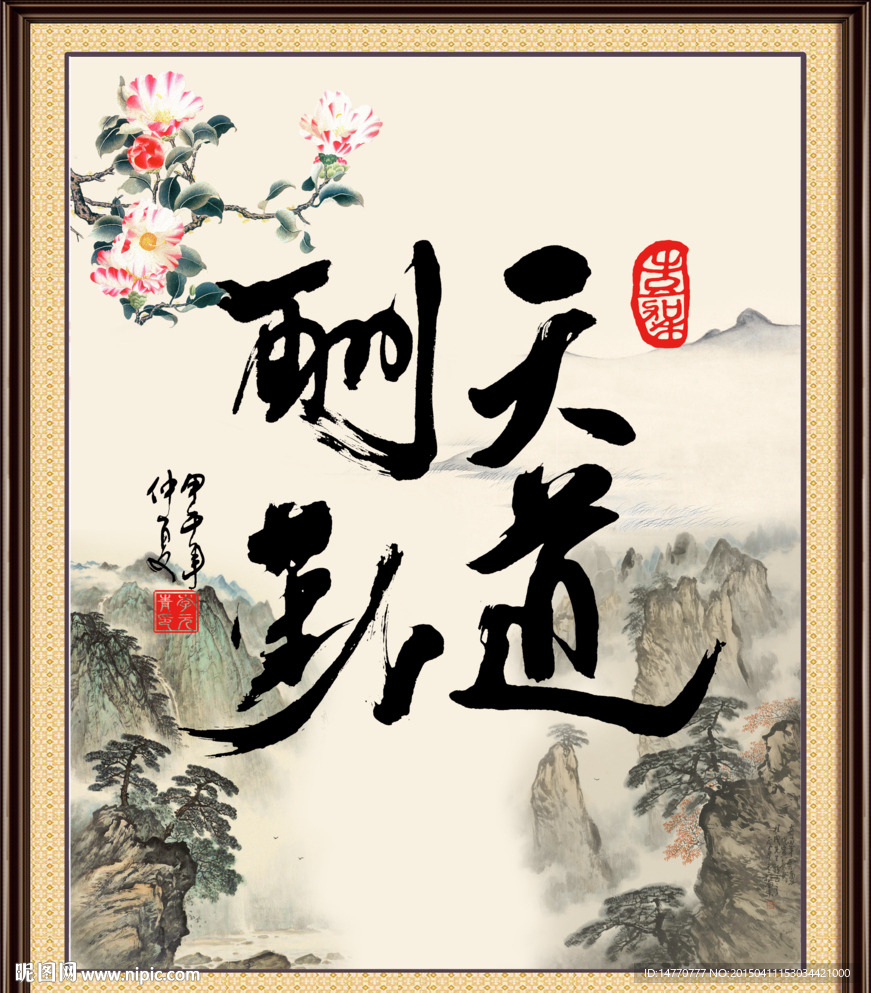 天道
酬勤
甲午年
仲夏
昵图网 www.nipic.com
ID:14770777 NO:20150411153034421000